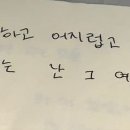 하고 어지럽고
는 난 그 예